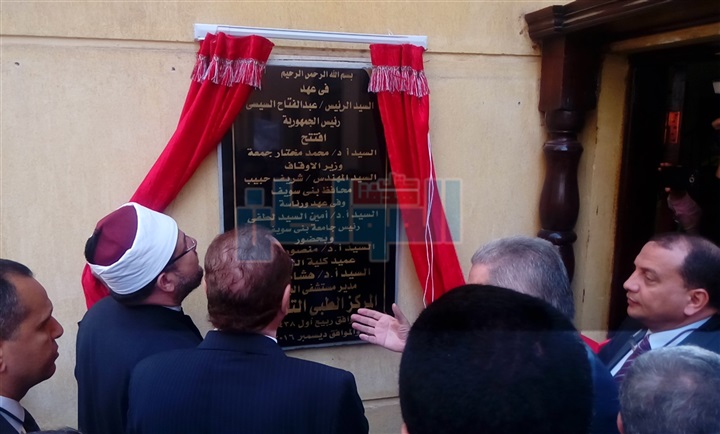 بسم الله الرحمن الرحيم
فى عهد
السيد الرئيس / عبدالفتاح السيسى
رئيس الجمهورية
افتتح
السيد أ.د/ محمد مختار جمعة
وزير الاوقاف
السيد المهندس / شريف حبيب
محافظ بنى سويف
وفى عهد ورئاسة
السيد أ.د/ أمين السيد لطفى
رئيس جامعة بنى سويف
وبحضور
السيد أ.د/ منصور
عميد كلية
السيد أ.د/ هشام
مدير مستشفى
المركز الطبى
ربيع أول
والموافق ديسمبر ٢٠١٦